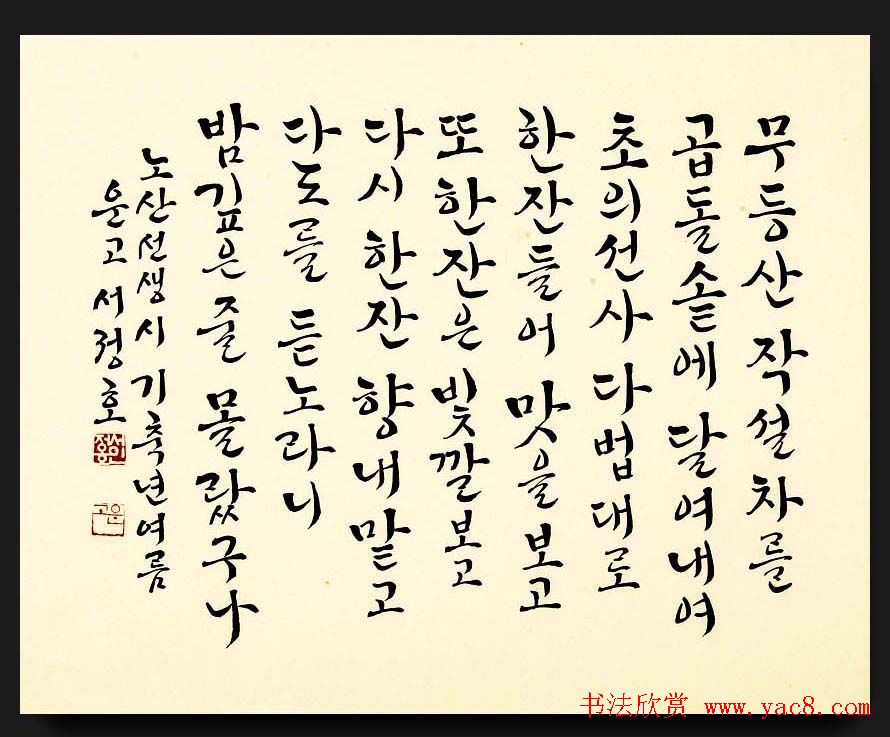 무등산 작설차를
곱돌솥에 달여내여
초의선사 다법대로
한잔들어 맛을 보고
또 한잔은 빛깔 보고
다시 한잔 향내 맡고
다도를 듣노라니
밤 깊은 줄 몰랐구나
노산선생시 기축년여름
운고 서정호
书法欣赏 www.yac8.com